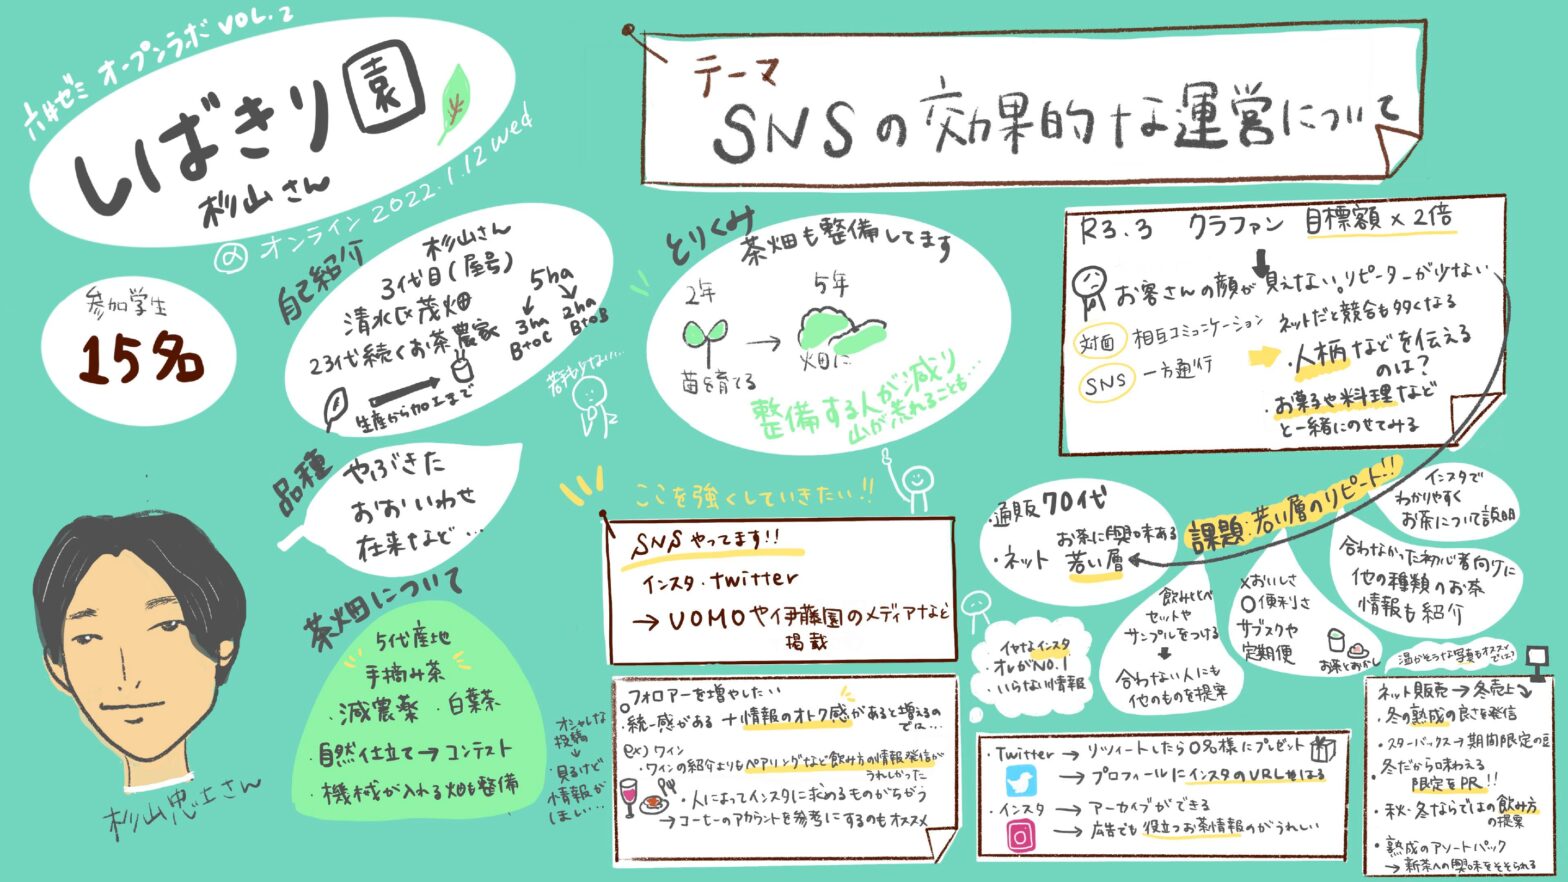 六井ゼミ オープンラボ VOL.2
しばきり園
杉山さん
@オンライン 2022.1.12 wed
テーマ
SNSの効果的な運営について
参加学生
15名
自己紹介
杉山さん
3代目(屋号)
清水区茂畑
23代続くお茶農家
5ha
3ha
BtoC
2ha
BtoB
生産から加工まで
若手少ない…
品種
やぶきた
おおいわせ
在来など…
茶畑について
5代産地
手摘み茶
・減農薬 ・白葉茶
・自然仕立て→コンテスト
・機械が入れる畑も整備
とりくみ
茶畑も整備してます
2年
5年
苗を育てる
畑に
整備する人が減り
山が荒れることも…
ここを強くしていきたい!!
SNSやってます!!
インスタ・twitter
→UOMOや伊藤園のメディアなど
掲載
フォロアーを増やしたい
・統一感がある+情報のオトク感があると増えるの
では…
ex)ワイン
・ワインの紹介よりもペアリングなど飲み方の情報発信が
うれしかった
・人によってインスタに求めるものがちがう
→コーヒーのアカウントを参考にするのもオススメ
オシャレな
投稿
↓
・見るけど
情報が
ほしい…
R3.3 クラファン 目標額×2倍
お客さんの顔が見えない。リピーターが少ない
対面 相互コミュニケーション
SNS 一方通行
・ネットだと競合も多くなる
・人柄などを伝える
のは?
・お菓子や料理など
と一緒にのせてみる
課題:若い層のリピート!!
・通販70代
お茶に興味ある
・ネット 若い層
インスタで
わかりやすく
お茶について説明
合わなかった初心者向けに
他の種類のお茶
情報も紹介
飲み比べ
セットや
サンプルをつける
↓
合わない人にも
他のものを提案
×おいしさ
○便利さ
サブスクや
定期便
お茶とおかし
イヤなインスタ
・オレがNO.1
・いらない情報
・Twitter→リツイートしたら○名様にプレゼント
→プロフィールにインスタのURLをはる
・インスタ→アーカイブができる
→広告でも役立つお茶情報のがうれしい
温かそうな写真もオススメ
では?
ネット販売→冬売上
・冬の熟成の良さを発信
・スターバックス→期間限定の豆
・冬だから味わえる
限定をPR!!
・秋・冬ならではの飲み方
の提案
・熟成のアソートパック
→新茶への興味をそそられる